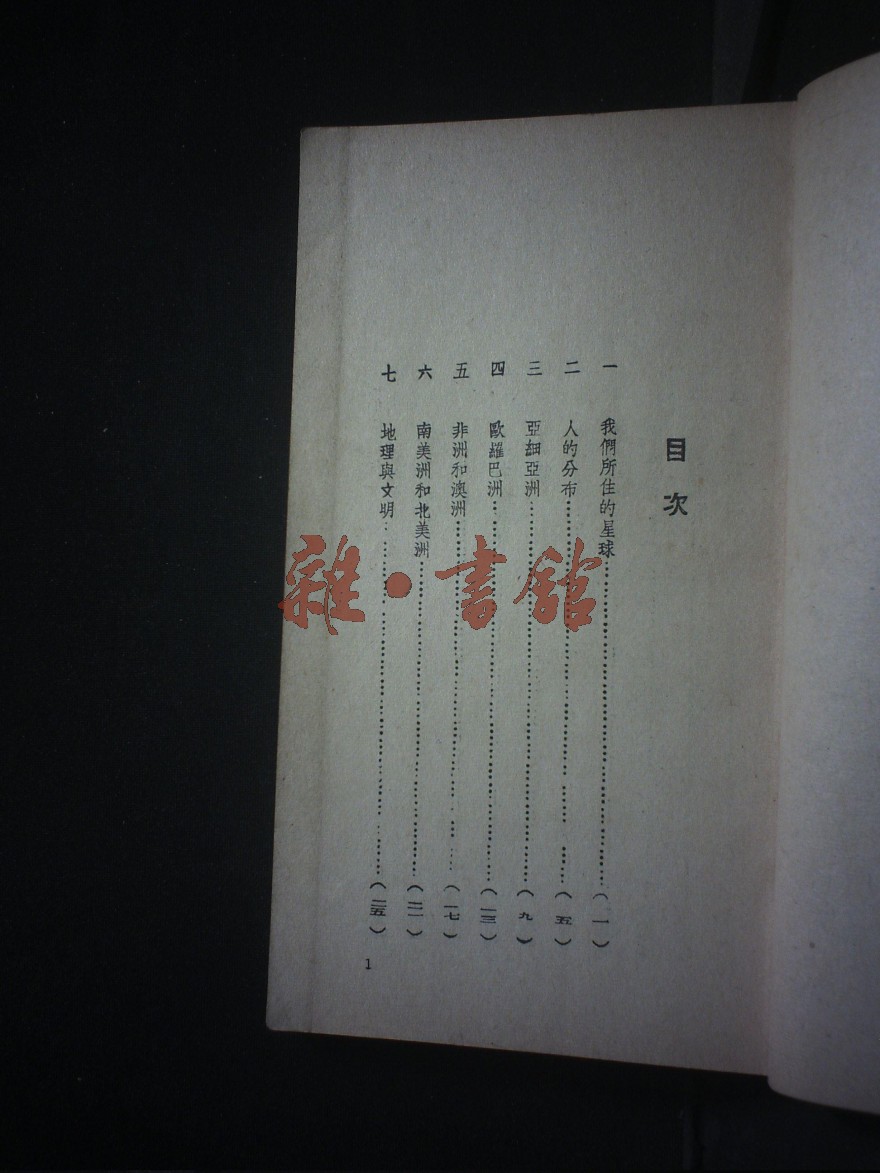 目次
一 我們所住的星球…………(一)
二 人的分布…………(五)
三 亞細亞洲…………(九)
四 歐羅巴洲…………(一三)
五 非洲和澳洲…………(一七)
六 南美洲和北美洲…………(二一)
七 地理與文明…………(二五)
1
雜·書館